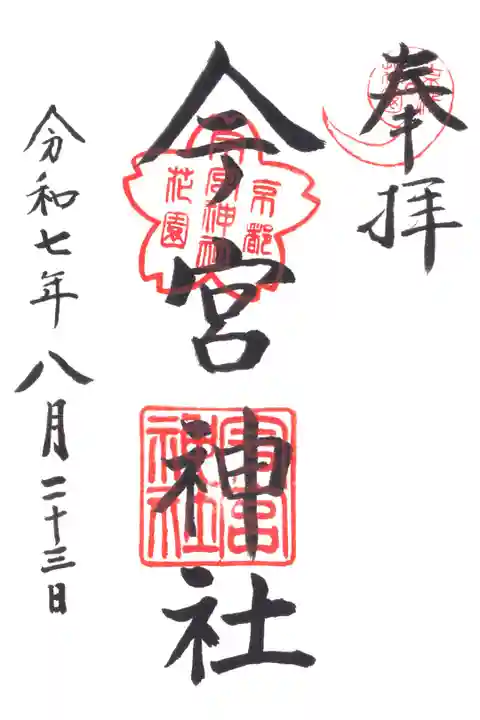 奉拝
今宮神社
令和七年八月二十三日
京都
今宮神社
花園